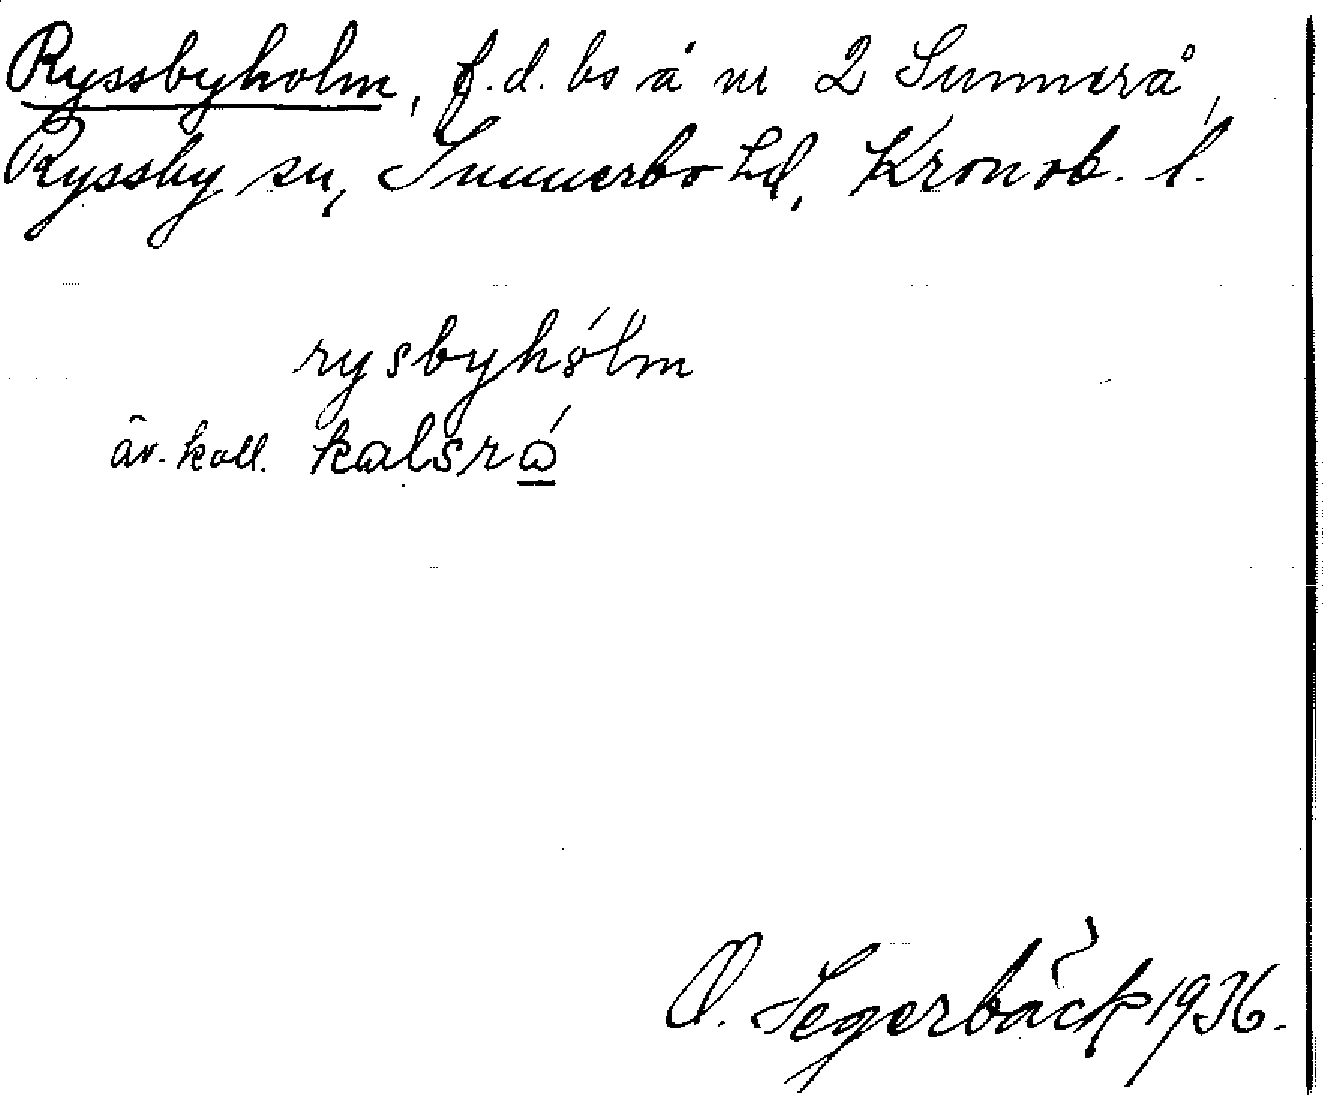 Ryssbyholm, f.d. bs å nr 2 Sunnerå,
Ryssby sn, Sunnerbo hd, Kronob. l.
rysbyhólm
äv. kall. kalsrǻ
O. Segerbäck 1936.